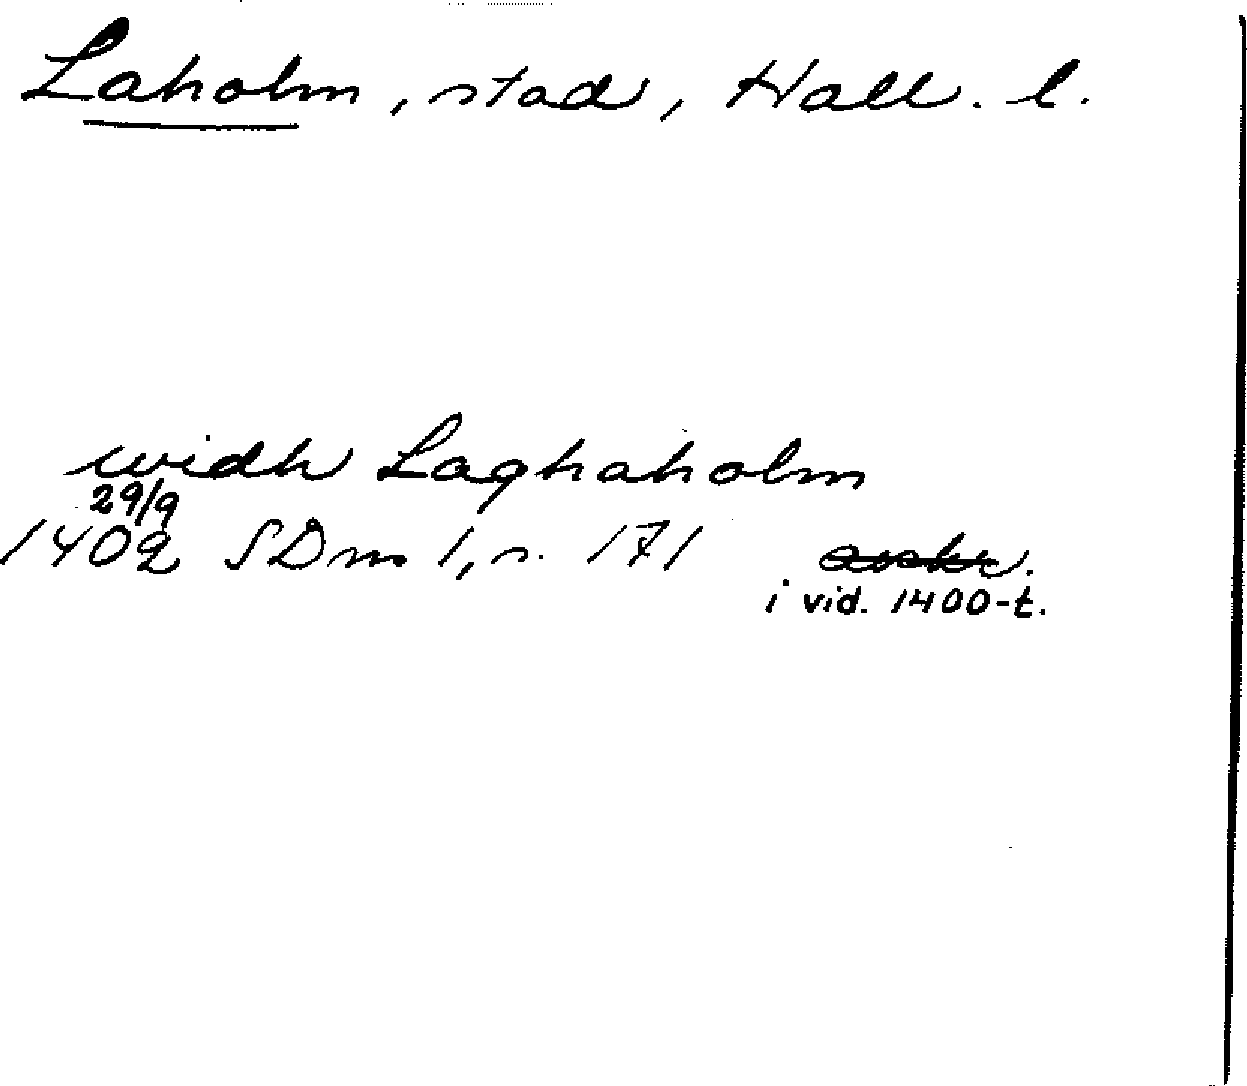 Laholm, stad, Hall. l.
widh Laghaholm
29/9
1402 SDns 1, s. 171 avskr.
i vid. 1400-t.